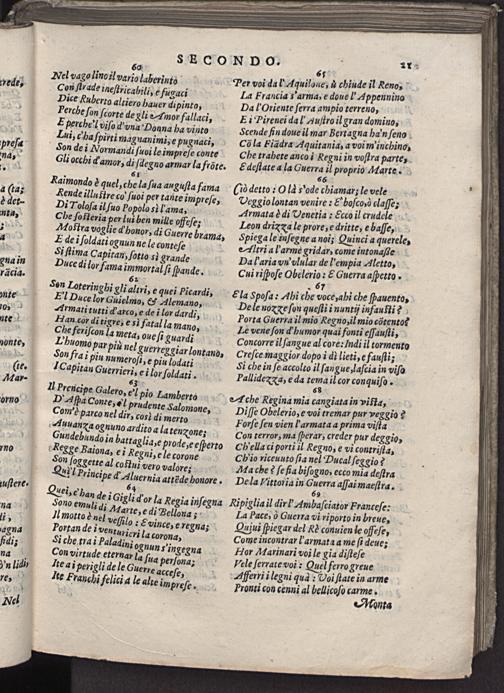 SECONDO. 21
60
Nel vago lino il vario laberinto
Con strade inestricabili, e fugaci
Dice Ruberto altiero hauer dipinto,
Perche son scorte de gli Amor fallaci,
E perche'l viso d'vna Donna ha vinto
Lui, c'ha spirti magnanimi, e pugnaci,
Son de i Normandi suoi le imprese conte
Gli occhi d'amor, di sdegno armar la frõte.
61
Raimondo è quel, che la sua augusta fama
Rende illustre co' suoi per tante imprese,
Di Tolosa il suo Popolo si l'ama,
Che sosteria per lui ben mille offese;
Mostra voglie d'honor, di Guerre brama,
E de i soldati ognun ne le contese
Si stima Capitan, sotto si grande
Duce di lor fama immortal si spande.
62
Son Loteringhi gli altri, e quei Picardi,
E'l Duce lor Guielmo, & Alemano,
Armati tutti d'arco, e de i lor dardi,
Han cor di tigre, e si fatal la mano,
Che ferisfon la meta, oue si guardi
L'huomo par più nel guerreggiar lontano,
Son fra i piu numerosi, e piu lodati
I Capitan Guerrieri, e i lor soldati.
63
Il Prencipe Galero, e'l pio Lamberto
D'Aspa Conte, e'l prudente Salomone,
Com'è parco nel dir, così di merto
Auuanza ognuno ardito a la tenzone;
Gundebundo in battaglia, e prode, e esperto
Regge Baiona, e i Regni, e le corone
Son soggette al costui vero valore;
Quì'l Principe d'Aluernia attẽde honore.
64
Quei, c'han de i Gigli d'or la Regia insegna
Sono emuli di Marte, e di Bellona;
Il motto è nel vessilo: E vince, e regna;
Portan de i venturieri la corona,
Si che tra i Paladini ognun s'ingegna
Con virtude eternar la sua persona;
Ite a i perigli de le Guerre accese,
Ite Franchi felici a le alte imprese.
65
Per voi da l'Aquilone, ù chiude il Reno,
La Francia s'arma, e doue l'Appennino
Da l'Oriente serra ampio terreno,
E i Pirenei da l'Austro il gran domino,
Scende fin doue il mar Bertagna ha'n seno
Cõ la Fiãdra Aquitania, a voi m'inchino,
Che trahete anco i Regni in vostra parte,
E destate a la Guerra il proprio Marte.
66
Ciò detto: O là s'ode chiamar; le vele
Veggio lontan venire: E' bosco, ò classe;
Armata è di Venetia: Ecco il crudele
Leon drizza le prore, e dritte, e basse,
Spiega le insegne a noi; Quinci a querele,
E Altri a l'arme gridar, come intonasse
Da l'aria vn'vlular de l'empia Aletto,
Cui rispose Obelerio: E Guerra aspetto.
67
E la Sposa: Ahi che voce, ahi che spauento,
De le nozze son questi i nuntij infausti?
Porta Guerra il mio Regno, il mio cõtento?
Le vene son d'humor quai fonti essausti,
Concorre il sangue al core: Indi il tormento
Cresce maggior dopo i dì lieti, e fausti;
Sì che in se accolto il sangue, lascia in viso
Pallidezza, e da tema il cor conquiso.
68
A che Regina mia cangiata in vista,
Disse Obelerio, e voi tremar pur veggio?
Forse sen vien l'armata a prima vista
Con terror, ma sperar, creder pur deggio,
Ch'ella ci porti il Regno, e vi contrista,
Ch'io riceuuto sia nel Ducal seggio?
Ma che? se fia bisogno, ecco mia destra
De la Vittoria in Guerra assai maestra.
69
Ripiglia il dir l'Ambasciator Francese:
La Pace, ò Guerra vi riporto in breue,
Qui si spiegar del Rè conuien le offese,
Come incontrar l'armata a me si deue;
Hor Marinari voi le gia distese
Vele serrate voi: Quel ferro greue
Afferri i legni quà: Voi state in arme
Pronti con cenni al bellicoso carme.
Monta